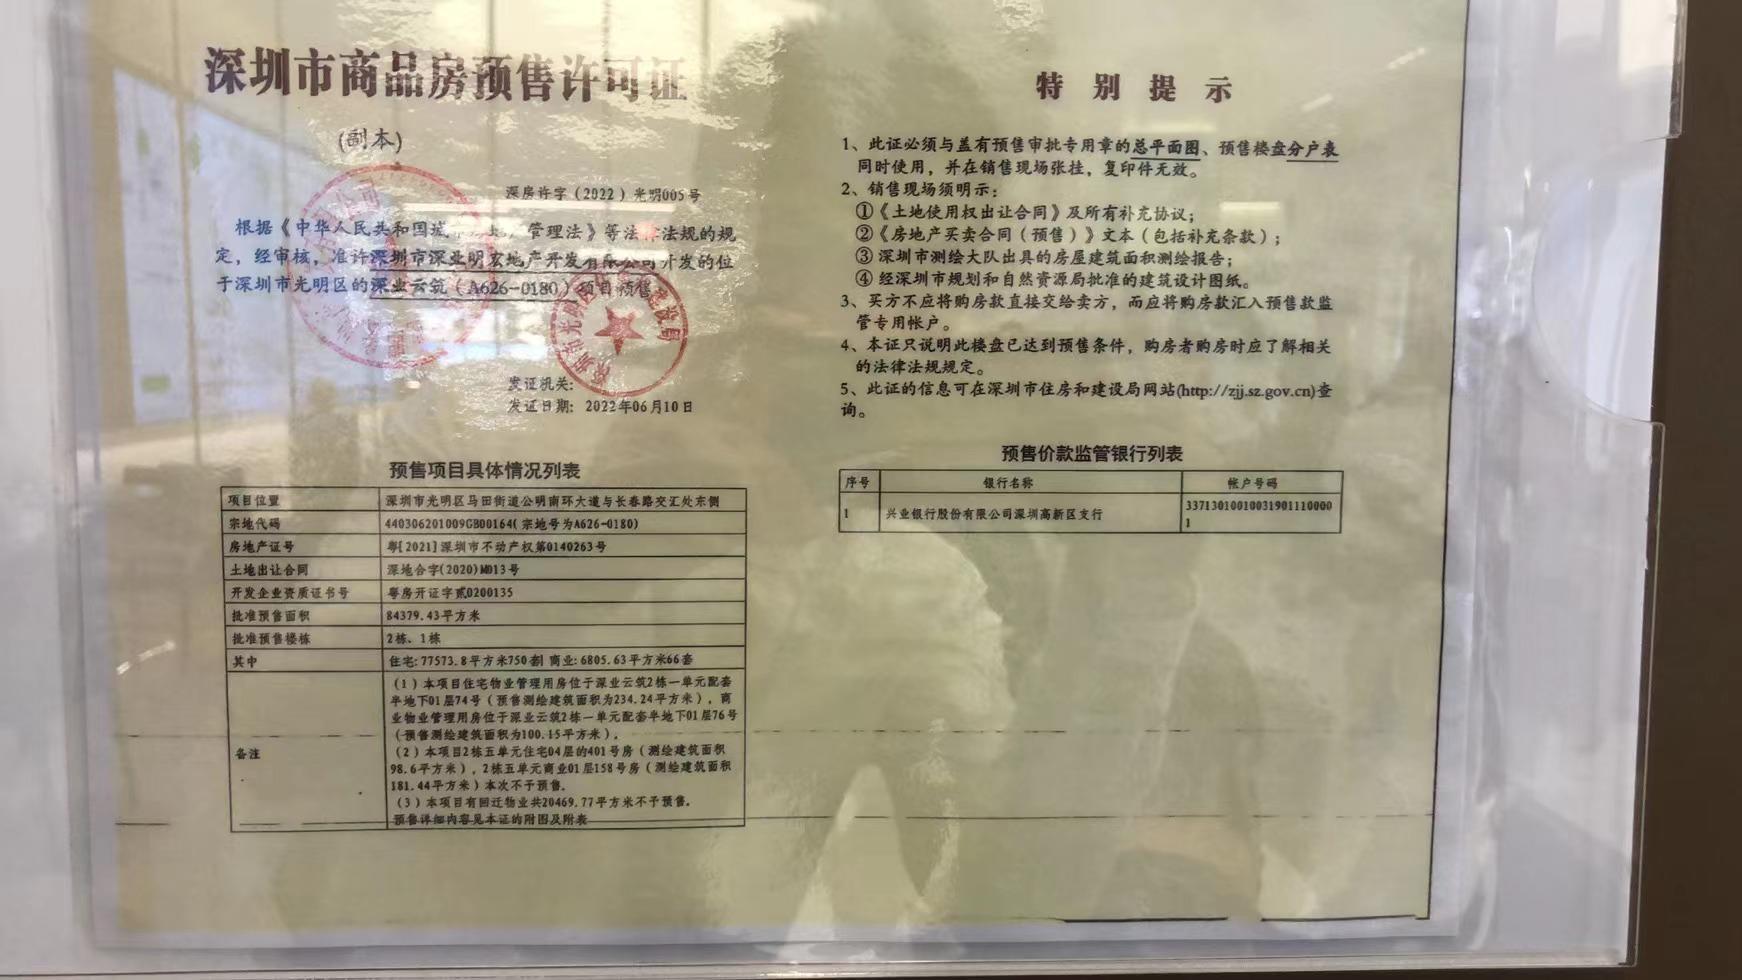 深圳市商品房预售许可证
(副本)
深房许字（2022）光明005号
根据《中华人民共和国城 管理法》等法律法规的规
定，经审核，准许深圳市深业明宏地产开发有限公司开发的位
于深圳市光明区的深业云筑（A626-0180）项目预售
发证机关:
发证日期: 2022年06月10日
预售项目具体情况列表
项目位置 深圳市光明区马田街道公明南环大道与长春路交汇处东侧
宗地代码 440306201009GB00164(宗地号为A626-0180)
房地产证号 粤[2021]深圳市不动产权第0140263号
土地出让合同 深地合字(2020)M013号
开发企业资质证书号 粤房开证字贰0200135
批准预售面积 84379.43平方米
批准预售楼栋 2栋、1栋
其中 住宅:77573.8平方米750套| 商业:6805.63平方米66套
备注
（1）本项目住宅物业管理用房位于深业云筑2栋一单元配套
半地下01层74号（预售测绘建筑面积为234.24平方米），商
业物业管理用房位于深业云筑2栋一单元配套半地下01层76号
（预售测绘建筑面积为100.15平方米）。
（2）本项目2栋五单元住宅04层的401号房（测绘建筑面积
98.6平方米），2栋五单元商业01层158号房（测绘建筑面积
181.44平方米）本次不予预售。
（3）本项目有回迁物业共20469.77平方米不予预售。
预售详细内容见本证的附图及附表
特别提示
1、此证必须与盖有预售审批专用章的总平面图、预售楼盘分户表
同时使用，并在销售现场张挂，复印件无效。
2、销售现场须明示：
①《土地使用权出让合同》及所有补充协议；
②《房地产买卖合同（预售）》文本（包括补充条款）；
③深圳市测绘大队出具的房屋建筑面积测绘报告；
④经深圳市规划和自然资源局批准的建筑设计图纸。
3、买方不应将购房款直接交给卖方，而应将购房款汇入预售款监
管专用帐户。
4、本证只说明此楼盘已达到预售条件，购房者购房时应了解相关
的法律法规规定。
5、此证的信息可在深圳市住房和建设局网站(http://zjj.sz.gov.cn)查
询。
预售价款监管银行列表
序号 银行名称 帐户号码
1 兴业银行股份有限公司深圳高新区支行 33713010010031901110000
1